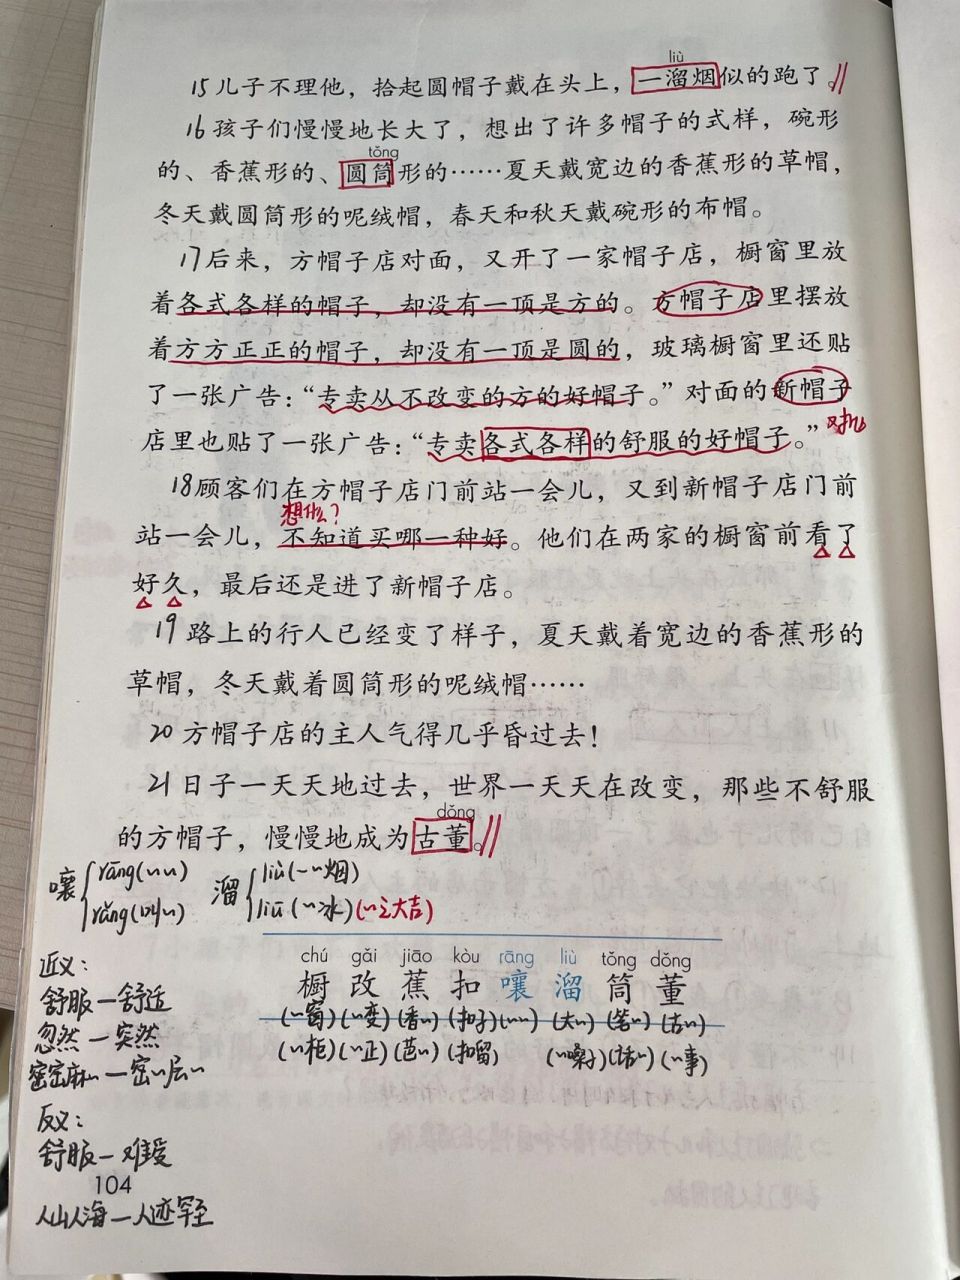 liù
15儿子不理他，拾起圆帽子戴在头上，一溜烟似的跑了。//
16孩子们慢慢地长大了，想出了许多帽子的式样，碗形
tǒng
的、香蕉形的、圆筒形的……夏天戴宽边的香蕉形的草帽，
冬天戴圆筒形的呢绒帽，春天和秋天戴碗形的布帽。
17后来，方帽子店对面，又开了一家帽子店，橱窗里放
着各式各样的帽子，却没有一顶是方的。方帽子店里摆放
着方方正正的帽子，却没有一顶是圆的，玻璃橱窗里还贴
了一张广告：“专卖从不改变的方的好帽子。”对面的新帽子
店里也贴了一张广告：“专卖各式各样的舒服的好帽子。”
对比
18顾客们在方帽子店门前站一会儿，又到新帽子店门前
想什么？
站一会儿，不知道买哪一种好。他们在两家的橱窗前看了
好久，最后还是进了新帽子店。
19路上的行人已经变了样子，夏天戴着宽边的香蕉形的
草帽，冬天戴着圆筒形的呢绒帽……
20方帽子店的主人气得几乎昏过去！
21日子一天天地过去，世界一天天在改变，那些不舒服
dǒng
的方帽子，慢慢地成为古董。//
嚷 rāng(〃〃) 溜 liù(一〃烟)
rǎng(叫〃) liū(〃冰)(〃之大吉)
chú gǎi jiāo kòu rāng liù tǒng dǒng
橱 改 蕉 扣 嚷 溜 筒 董
(〃窗)(〃变)(香〃)(扣子)(〃〃) (大〃)(笔〃)(古〃)
(〃柜)(〃正)(芭〃)(扣留) (〃嗓子)(话〃)(〃事)
近义：
舒服—舒适
忽然—突然
密密麻〃—密〃层〃
反义：
舒服—难受
104
人山人海—人迹罕至